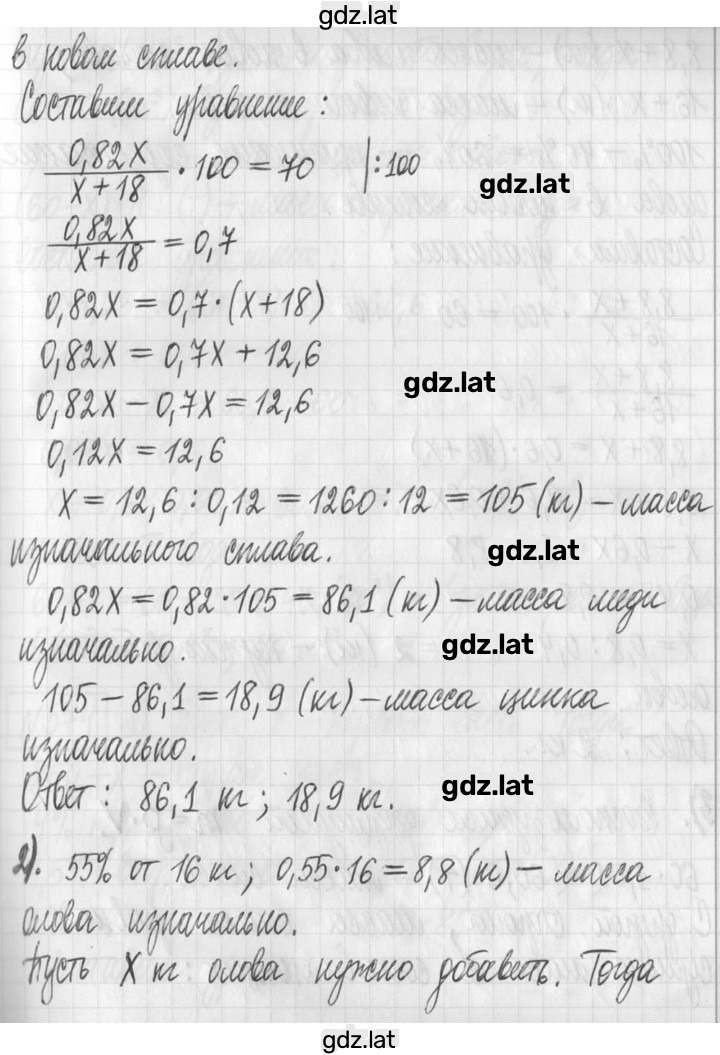 gdz.lat
в новом сплаве.
Составим уравнение:
0,82x/(x+18) · 100 = 70 |:100
gdz.lat
0,82x/(x+18) = 0,7
0,82x = 0,7·(x+18)
0,82x = 0,7x + 12,6
gdz.lat
0,82x − 0,7x = 12,6
0,12x = 12,6
x = 12,6 : 0,12 = 1260 : 12 = 105 (кг) – масса
изначального сплава.
gdz.lat
0,82x = 0,82·105 = 86,1 (кг) – масса меди
изначально.
gdz.lat
105 – 86,1 = 18,9 (кг) – масса цинка
изначально.
Ответ: 86,1 кг; 18,9 кг.
gdz.lat
2). 55% от 16 кг; 0,55·16 = 8,8 (кг) – масса
олова изначально.
Пусть x кг олова нужно добавить. Тогда
gdz.lat